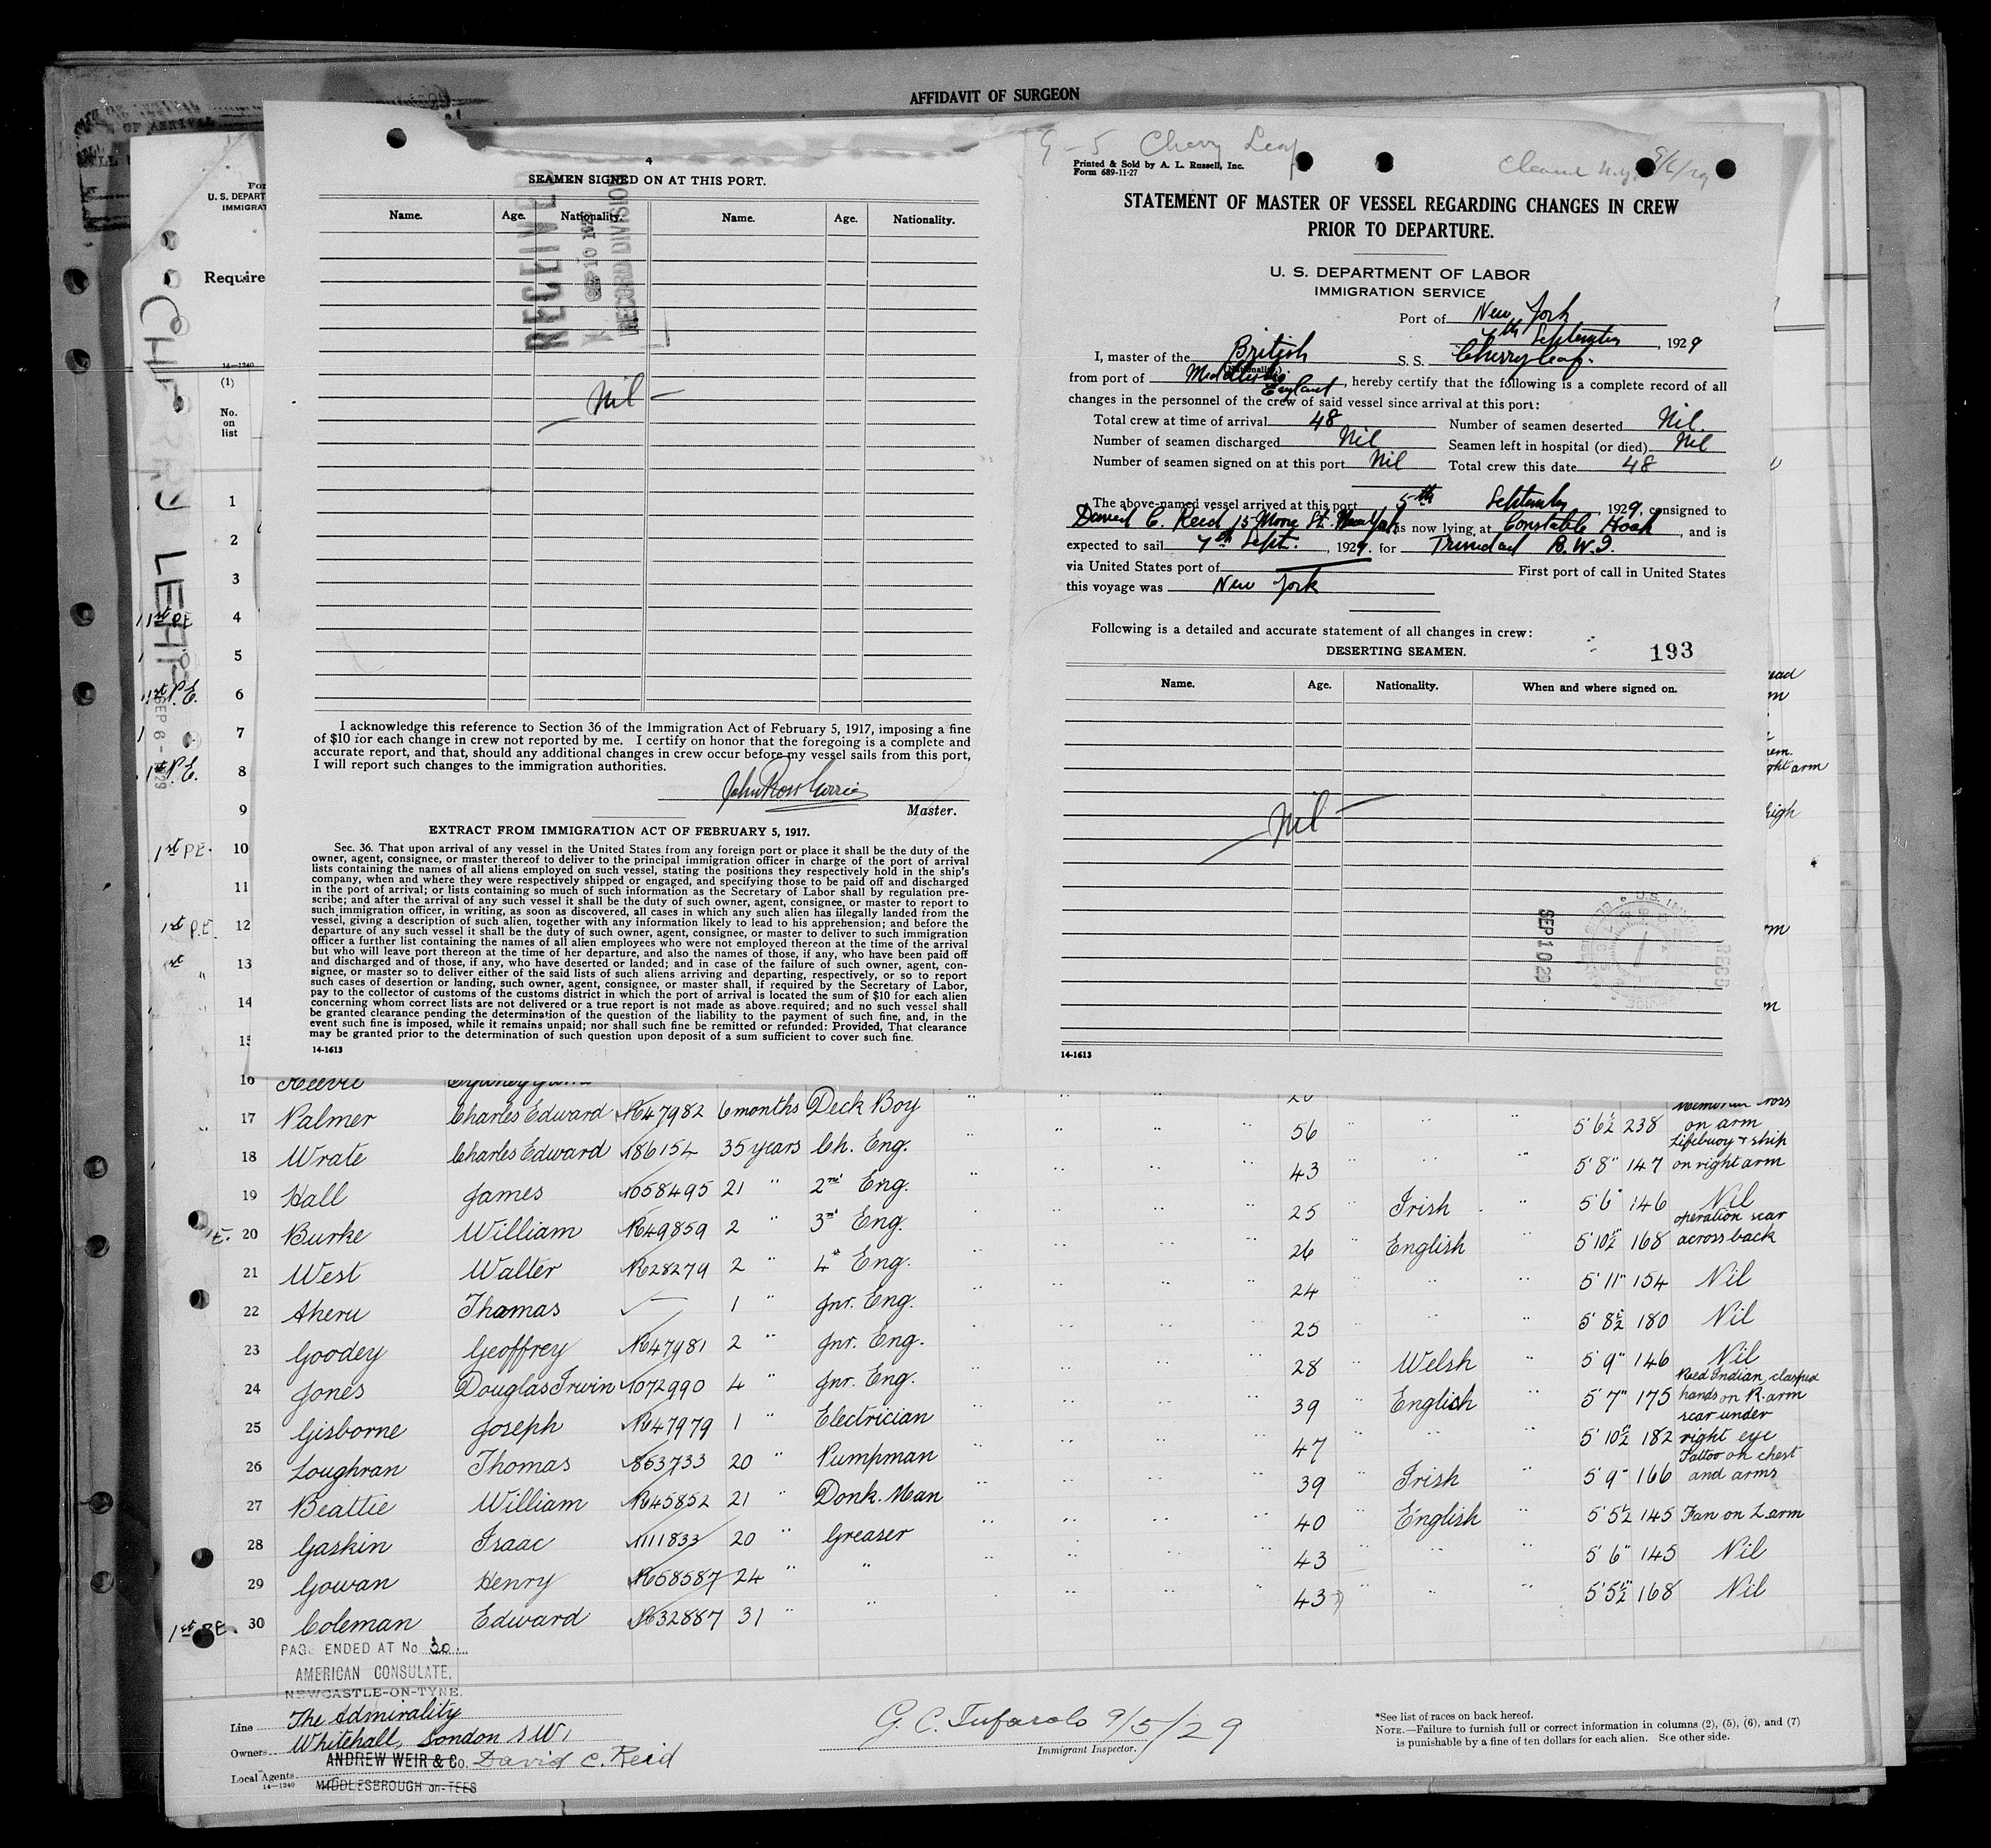 AFFIDAVIT OF SURGEON
4
SEAMEN SIGNED ON AT THIS PORT.
Name. Age. Nationality. Name. Age. Nationality.
RECEIVED
RECORD DIVISION
Nil
I acknowledge this reference to Section 36 of the Immigration Act of February 5, 1917, imposing a fine
of $10 for each change in crew not reported by me. I certify on honor that the foregoing is a complete and
accurate report, and that, should any additional changes in crew occur before my vessel sails from this port,
I will report such changes to the immigration authorities.
John Ross
Master.
EXTRACT FROM IMMIGRATION ACT OF FEBRUARY 5, 1917.
Sec. 36. That upon arrival of any vessel in the United States from any foreign port or place it shall be the duty of the
owner, agent, consignee, or master thereof to deliver to the principal immigration officer in charge of the port of arrival
lists containing the names of all aliens employed on such vessel, stating the positions they respectively hold in the ship's
company, when and where they were respectively shipped or engaged, and specifying those to be paid off and discharged
in the port of arrival; or lists containing so much of such information as the Secretary of Labor shall by regulation pre-
scribe; and after the arrival of any such vessel it shall be the duty of such owner, agent, consignee, or master to report to
such immigration officer, in writing, as soon as discovered, all cases in which any such alien has illegally landed from the
vessel, giving a description of such alien, together with any information likely to lead to his apprehension; and before the
departure of any such vessel it shall be the duty of such owner, agent, consignee, or master to deliver to such immigration
officer a further list containing the names of all alien employees who were not employed thereon at the time of the arrival
but who will leave port thereon at the time of her departure, and also the names of those, if any, who have been paid off
and discharged and of those, if any, who have deserted or landed; and in case of the failure of such owner, agent, con-
signee, or master so to deliver either of the said lists of such aliens arriving and departing, respectively, or so to report
such cases of desertion or landing, such owner, agent, consignee, or master shall, if required by the Secretary of Labor,
pay to the collector of customs of the customs district in which the port of arrival is located the sum of $10 for each alien
concerning whom correct lists are not delivered or a true report is not made as above required; and no such vessel shall
be granted clearance pending the determination of the question of the liability to the payment of such fine, and, in the
event such fine is imposed, while it remains unpaid; nor shall such fine be remitted or refunded: Provided, That clearance
may be granted prior to the determination of such question upon deposit of a sum sufficient to cover such fine.
14-1613
9-5 Cherry Leaf
Printed & Sold by A. L. Russell, Inc.
Form 689-11-27
Cleared N.Y. 9/6/29
STATEMENT OF MASTER OF VESSEL REGARDING CHANGES IN CREW
PRIOR TO DEPARTURE.
U. S. DEPARTMENT OF LABOR
IMMIGRATION SERVICE
Port of New York
7th September, 1929
I, master of the British S. S. Cherryleaf.
(Nationality)
from port of England, hereby certify that the following is a complete record of all
changes in the personnel of the crew of said vessel since arrival at this port:
Total crew at time of arrival 48 Number of seamen deserted Nil.
Number of seamen discharged Nil Seamen left in hospital (or died) Nil
Number of seamen signed on at this port Nil Total crew this date 48
The above-named vessel arrived at this port 5th September, 1929, consigned to
David C. Reid 15 Moore St. New York is now lying at Constable Hook, and is
expected to sail 7th Sept., 1929. for Trinidad B.W.I.
via United States port of First port of call in United States
this voyage was New York
Following is a detailed and accurate statement of all changes in crew:
DESERTING SEAMEN. 193
Name. Age. Nationality. When and where signed on.
Nil
SEP 10 29
14-1613
U. S. DEPART
IMMIGRAT
Require
14-1240
(1)
No.
on
list
CHERRY LEAF
SEP 6 - 1929
1
2
3
4 1st PE
5
6 1st P.E.
7
8 1st P.E.
9
10 1st PE.
11
12 1st P.E.
13 1st "
14
15
16
17 Palmer Charles Edward R647982 6 months Deck Boy
18 Wrate Charles Edward 186154 35 years Ch. Eng. 56 5'6½ 238 on arm
19 Hall James 1058495 21 " 2nd Eng. 43 5'8" 147 Lifebuoy & ship on right arm
20 Burke William R649859 2 " 3rd Eng. 25 Irish 5'6" 146 Nil
21 West Walter R628279 2 " 4th Eng. 26 English 5'10½ 168 operation scar across back
22 Ahern Thomas 1 " Jnr. Eng. 24 5'11" 154 Nil
23 Goodey Geoffrey R647981 2 " Jnr. Eng. 25 5'8½ 180 Nil
24 Jones Douglas Irwin 1072990 4 " Jnr. Eng. 28 Welsh 5'9" 146 Nil
25 Gisborne Joseph R647979 1 " Electrician 39 English 5'7" 175 Red Indian, clasped hands on R. arm
26 Loughran Thomas 853733 20 " Pumpman 47 5'10½ 182 scar under right eye
27 Beattie William R645852 21 " Donk. Man 39 Irish 5'9" 166 Tattoo on chest and arms
28 Gaskin Isaac 1111833 20 " Greaser 40 English 5'5½ 145 Fan on L arm
29 Gowan Henry R658587 24 " " 43 5'6" 145 Nil
1st PE. 30 Coleman Edward R632887 31 " " 43 5'5½" 168 Nil
PAGE ENDED AT No. 30
AMERICAN CONSULATE,
NEWCASTLE-ON-TYNE.
Line The Admirality
Owners Whitehall, London SW1
Local Agents ANDREW WEIR & Co. David C. Reid
14-1240 MIDDLESBROUGH on-TEES
G. C. Tufarolo 9/5/29
Immigrant Inspector.
*See list of races on back hereof.
NOTE.—Failure to furnish full or correct information in columns (2), (5), (6), and (7)
is punishable by a fine of ten dollars for each alien. See other side.